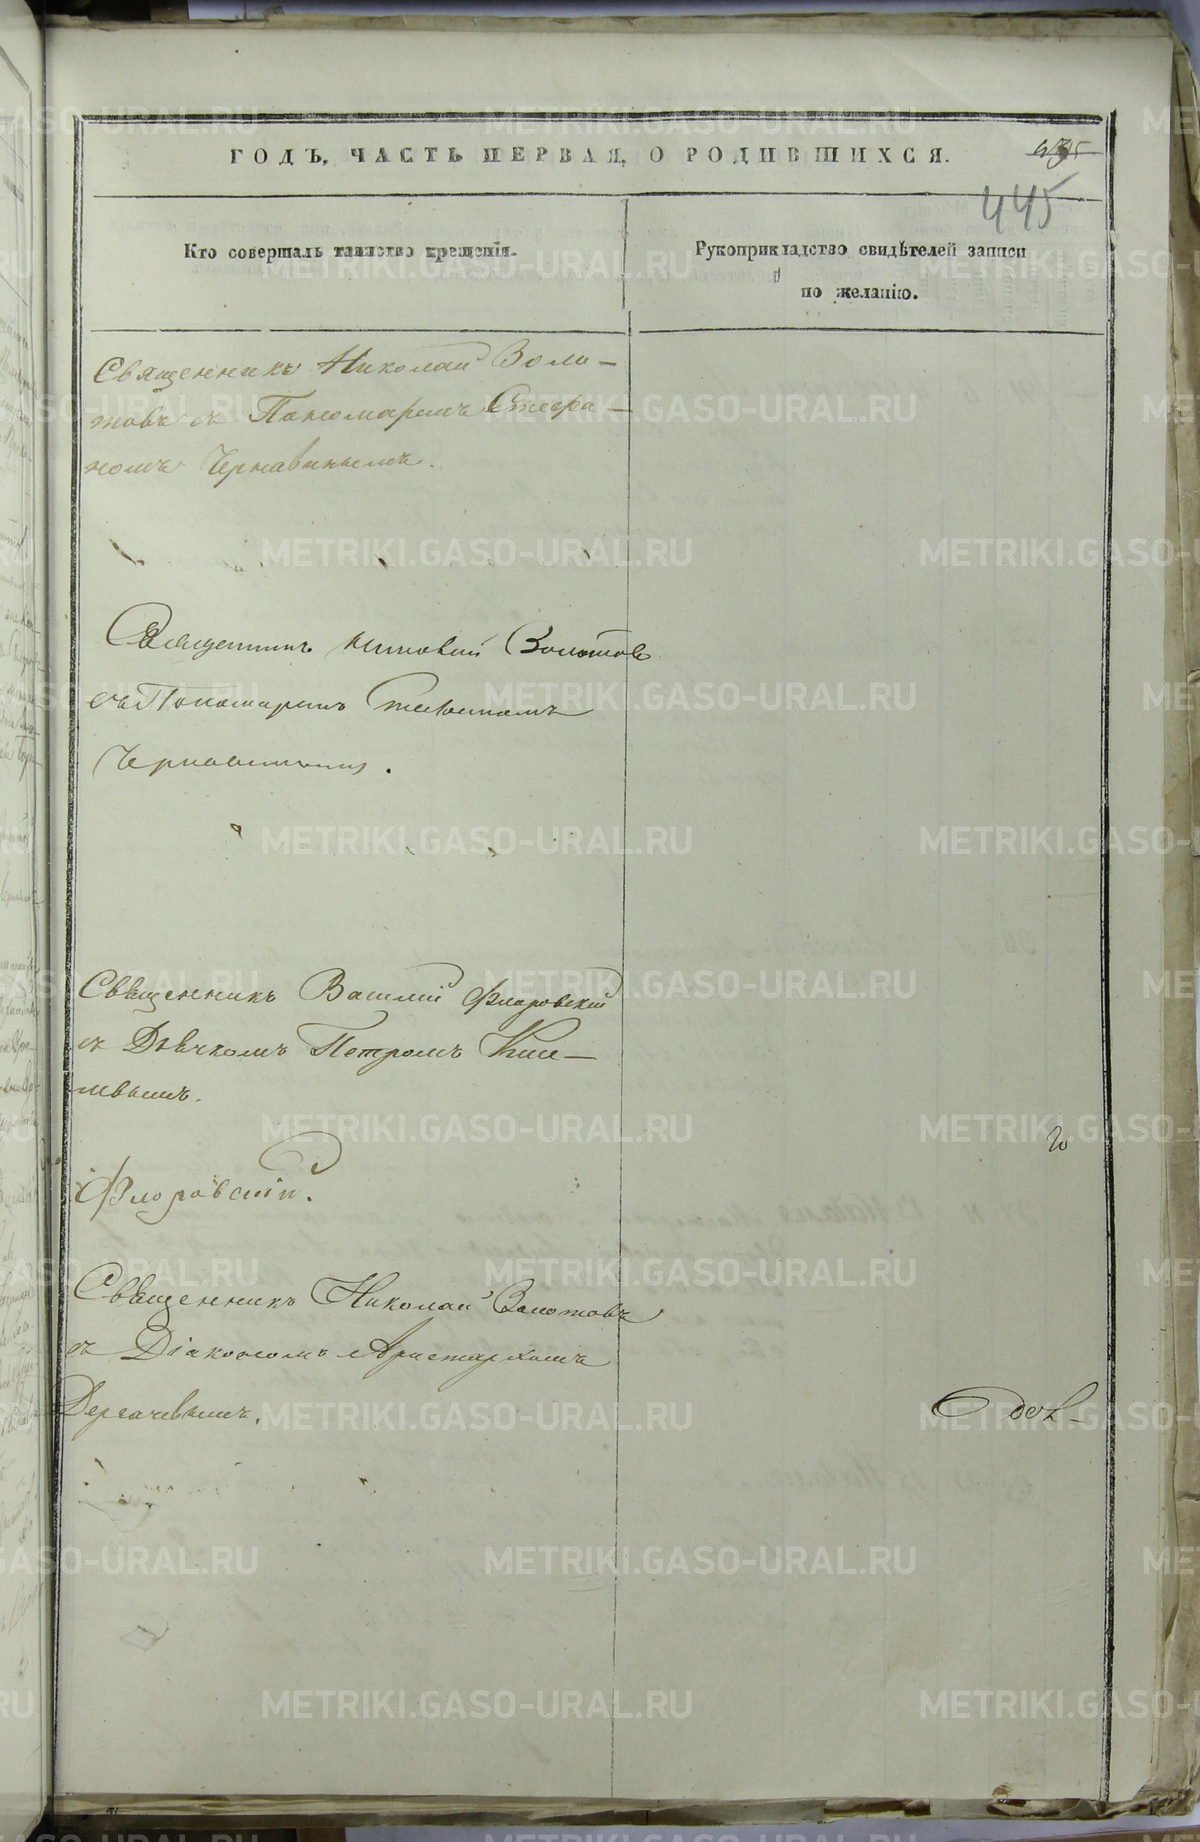 ГОДЪ, ЧАСТЬ ПЕРВАЯ, О РОДИВШИХСЯ.
445
Кто совершалъ таинство крещенія.
Рукоприкладство свидѣтелей записи
по желанію.
Священникъ Николай Золо-
товъ съ Пономаремъ Стефа-
номъ Чернавинымъ.
Священникъ Николай Золотовъ
съ Пономаремъ Стефаномъ
Чернавинымъ.
Священникъ Василій Флоровскій
съ Дьячкомъ Петромъ
Флоровскій.
Священникъ Николай Золотовъ
съ Діакономъ Аристархомъ
Дергачевымъ.
METRIKI.GASO-URAL.RU